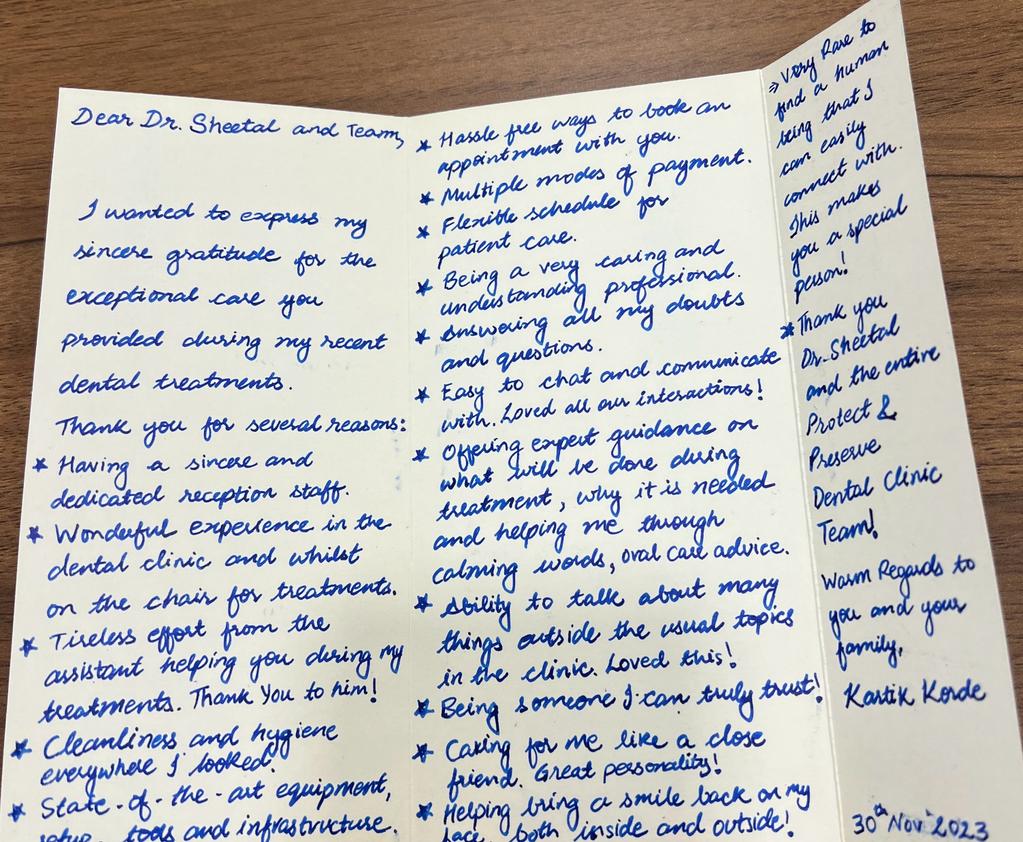 Dear Dr. Sheetal and Team,
I wanted to express my
sincere gratitude for the
exceptional care you
provided during my recent
dental treatments.
Thank you for several reasons:
* Having a sincere and
dedicated reception staff.
* Wonderful experience in the
dental clinic and whilst
on the chair for treatments.
* Tireless effort from the
assistant helping you during my
treatments. Thank You to him!
* Cleanliness and hygiene
everywhere I looked.
* State-of-the-art equipment,
setup, tools and infrastructure.
* Hassle free ways to book an
appointment with you.
* Multiple modes of payment.
* Flexible schedule for
patient care.
* Being a very caring and
understanding professional.
* Answering all my doubts
and questions.
* Easy to chat and communicate
with. Loved all our interactions!
* Offering expert guidance on
what will be done during
treatment, why it is needed
and helping me through
calming words, oral care advice.
* Ability to talk about many
things outside the usual topics
in the clinic. Loved this!
* Being someone I can truly trust!
* Caring for me like a close
friend. Great personality!
* Helping bring a smile back on my
face, both inside and outside!
⇒ Very Rare to
find a human
being that I
can easily
connect with.
This makes
you a special
person!
* Thank you
Dr. Sheetal
and the entire
Protect &
Preserve
Dental Clinic
Team!
Warm Regards to
you and your
family,
Kartik Korde
30th Nov 2023